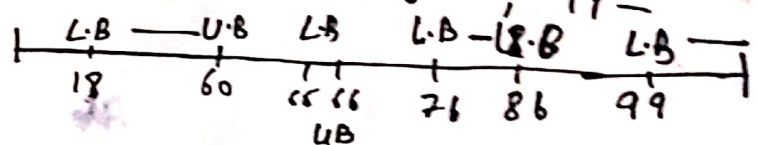 L.B — U.B L.B L.B - U.B L.B —
18 60 65 66 76 86 99
UB